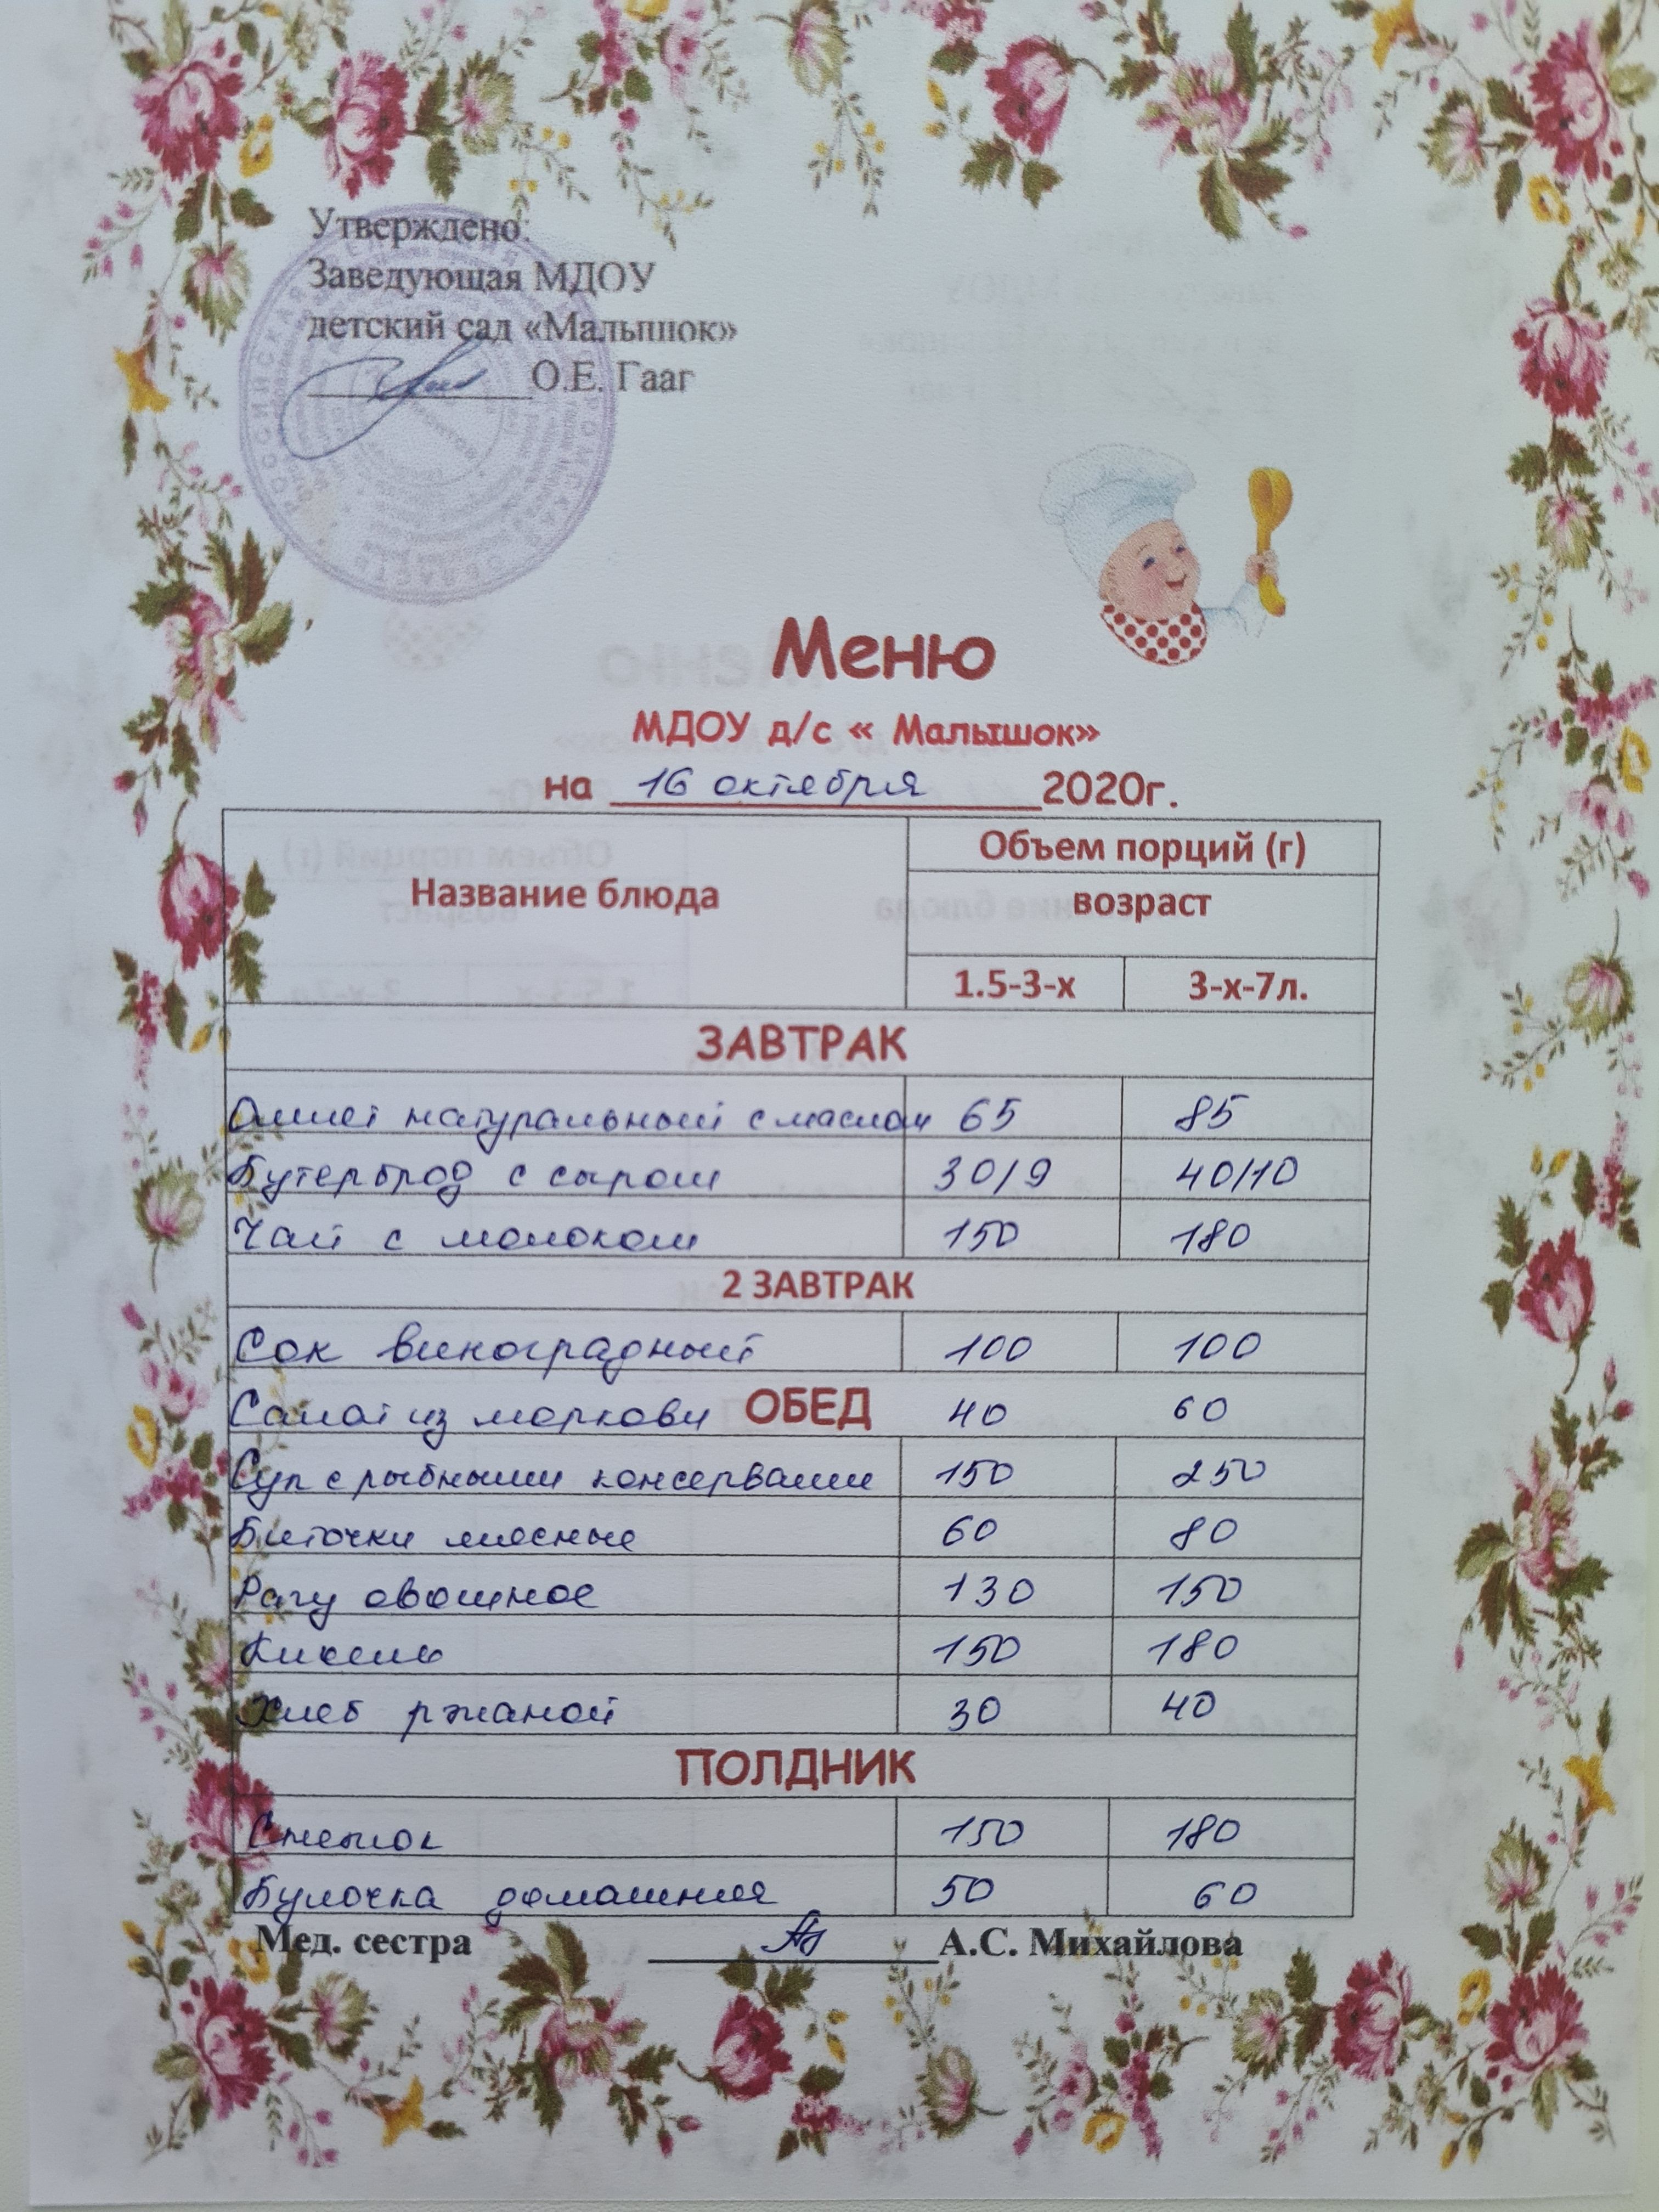 Утверждено:
Заведующая МДОУ
детский сад «Малышок»
О.Е. Гааг
Меню
МДОУ д/с « Малышок»
на 16 октября 2020г.
Название блюда
Объем порций (г)
возраст
1.5-3-х 3-х-7л.
ЗАВТРАК
Омлет натуральный с маслом 65 85
Бутерброд с сыром 30/9 40/10
Чай с молоком 150 180
2 ЗАВТРАК
Сок виноградный 100 100
Салат из моркови ОБЕД 40 60
Суп с рыбными консервами 150 250
Биточки мясные 60 80
Рагу овощное 130 150
Кисель 150 180
Хлеб ржаной 30 40
ПОЛДНИК
Снежок 150 180
Булочка домашняя 50 60
Мед. сестра А.С. Михайлова